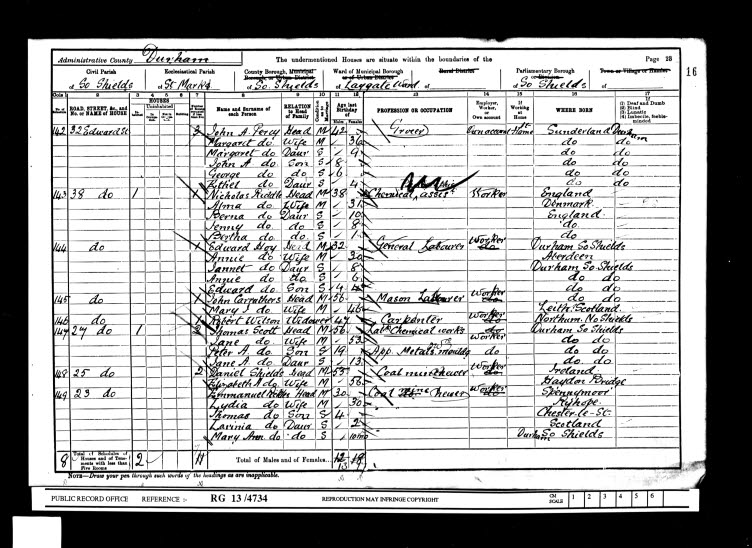 Administrative County Durham The undermentioned Houses are situate within the boundaries of the Page 23
16
Civil Parish Ecclesiastical Parish County Borough, Municipal Borough or Urban District Ward of Municipal Borough or of Urban District Rural District Parliamentary Borough or Division Town or Village or Hamlet
of So Shields of St Mark's of So. Shields of Laygate Ward of of So Shields of
Cols. 1 2 3 4 5 6 7 8 9 10 11 12 13 14 15 16 17
ROAD, STREET, &c., and No. or NAME of HOUSE HOUSES Name and Surname of each Person RELATION to Head of Family Age last Birthday of PROFESSION OR OCCUPATION Employer, Worker, or Own account If Working at Home WHERE BORN (1) Deaf and Dumb (2) Blind (3) Lunatic (4) Imbecile, feeble-minded
142 32 Edward St John A Percy Head M 42 Grocer Own account At Home Sunderland Durham
Margaret do Wife M 36 do do
Margaret do Daur S 9 do do
John A do Son S 8 do do
George do do S 6 do do
Ethel do Daur S 4 do do
143 38 do 1 Nicholas Riddle Head M 38 Chemical Worker England
Alma do Wife M 31 Denmark
Berna do Daur S 10 England
Jenny do do S 8 do
Bertha do do S 1 do
144 do Edward Hoy Head M 32 General Labourer Worker Durham So Shields
Annie do Wife M 30 Aberdeen
Jannet do Daur S 8 Durham So Shields
Annie do do S 6 do do
Edward do Son S 4 do do
145 do John Carruthers Head M 56 Mason Labourer Worker do do
Mary J do Wife M 46 Leith Scotland
146 do Robert Wilson Widower 47 Carpenter Worker Northum. No Shields
147 27 do 1 2 Thomas Scott Head M 56 Lab Chemical works do Durham So Shields
Jane do Wife M 53 do do
Peter A do Son S 19 App. Metal mould do do do
Jane A do Daur S 13 do do
148 25 do 2 Daniel Shields Head M 55 Coal miner hewer Worker Ireland
Elizabeth A do Wife M 56 Haydon Bridge
149 23 do Emmanuel Head M 30 Coal mine hewer Worker Spennymoor
Lydia do Wife M 30 Ryhope
Thomas do Son S 4 Chester-le-St.
Lavinia do Daur S 2 Scotland
Mary Ann do do S 10 mo Durham So Shields
8 Total of Schedules of Houses and of Tenements with less than Five Rooms 2 11 Total of Males and of Females...
NOTE—Draw your pen through such words of the headings as are inapplicable.
PUBLIC RECORD OFFICE REFERENCE :- RG 13/4734 REPRODUCTION MAY INFRINGE COPYRIGHT CM SCALE 1 2 3 4 5 6